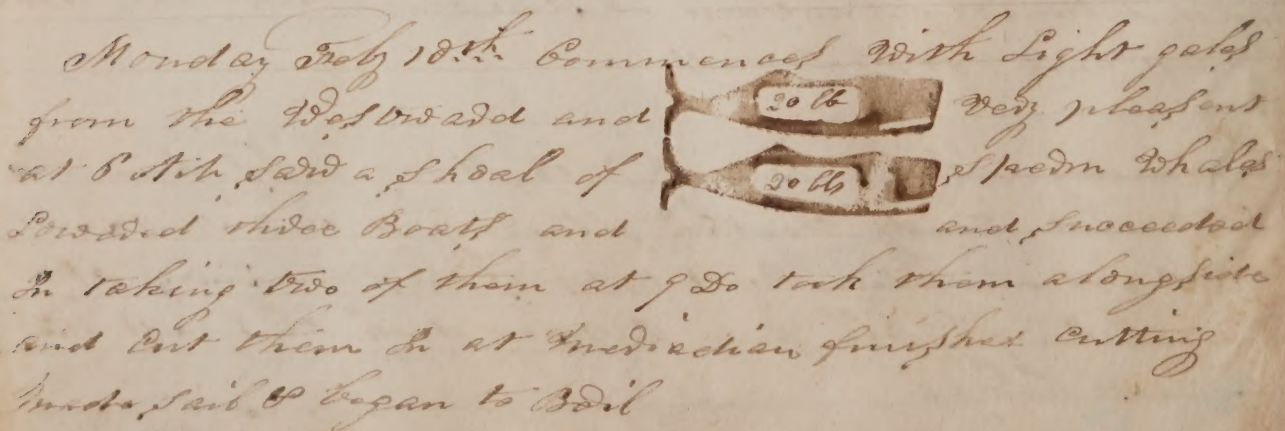 Monday Feb 18th Commences with Light gales
from the Westward and 20 bb very pleasent
at 6 AM saw a shoal of 20 bbs sperm whales
Lowered three Boats and and succeeded
In taking two of them at 9 Do took them alongside
and Cut them In at meridian finished Cutting
made sail & began to Boil